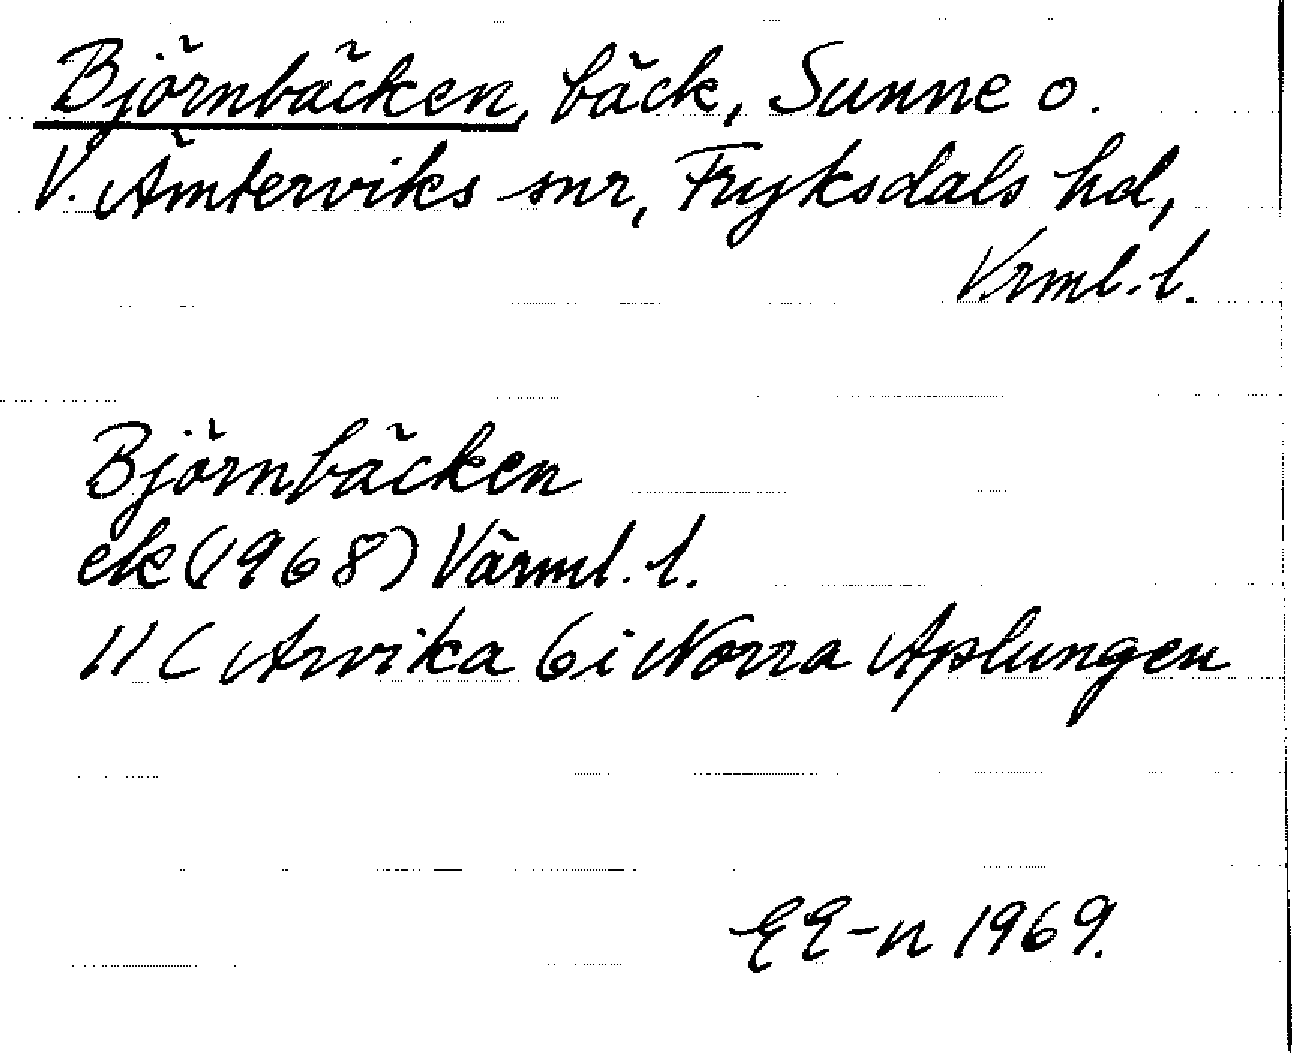 Björnbäcken, bäck, Sunne o.
V. Ämterviks snr, Fryksdals hd,
Vrml. l.
Björnbäcken
ek (1968) Värml. l.
11 C Arvika 6 i Norra Aplungen
EE-n 1969.